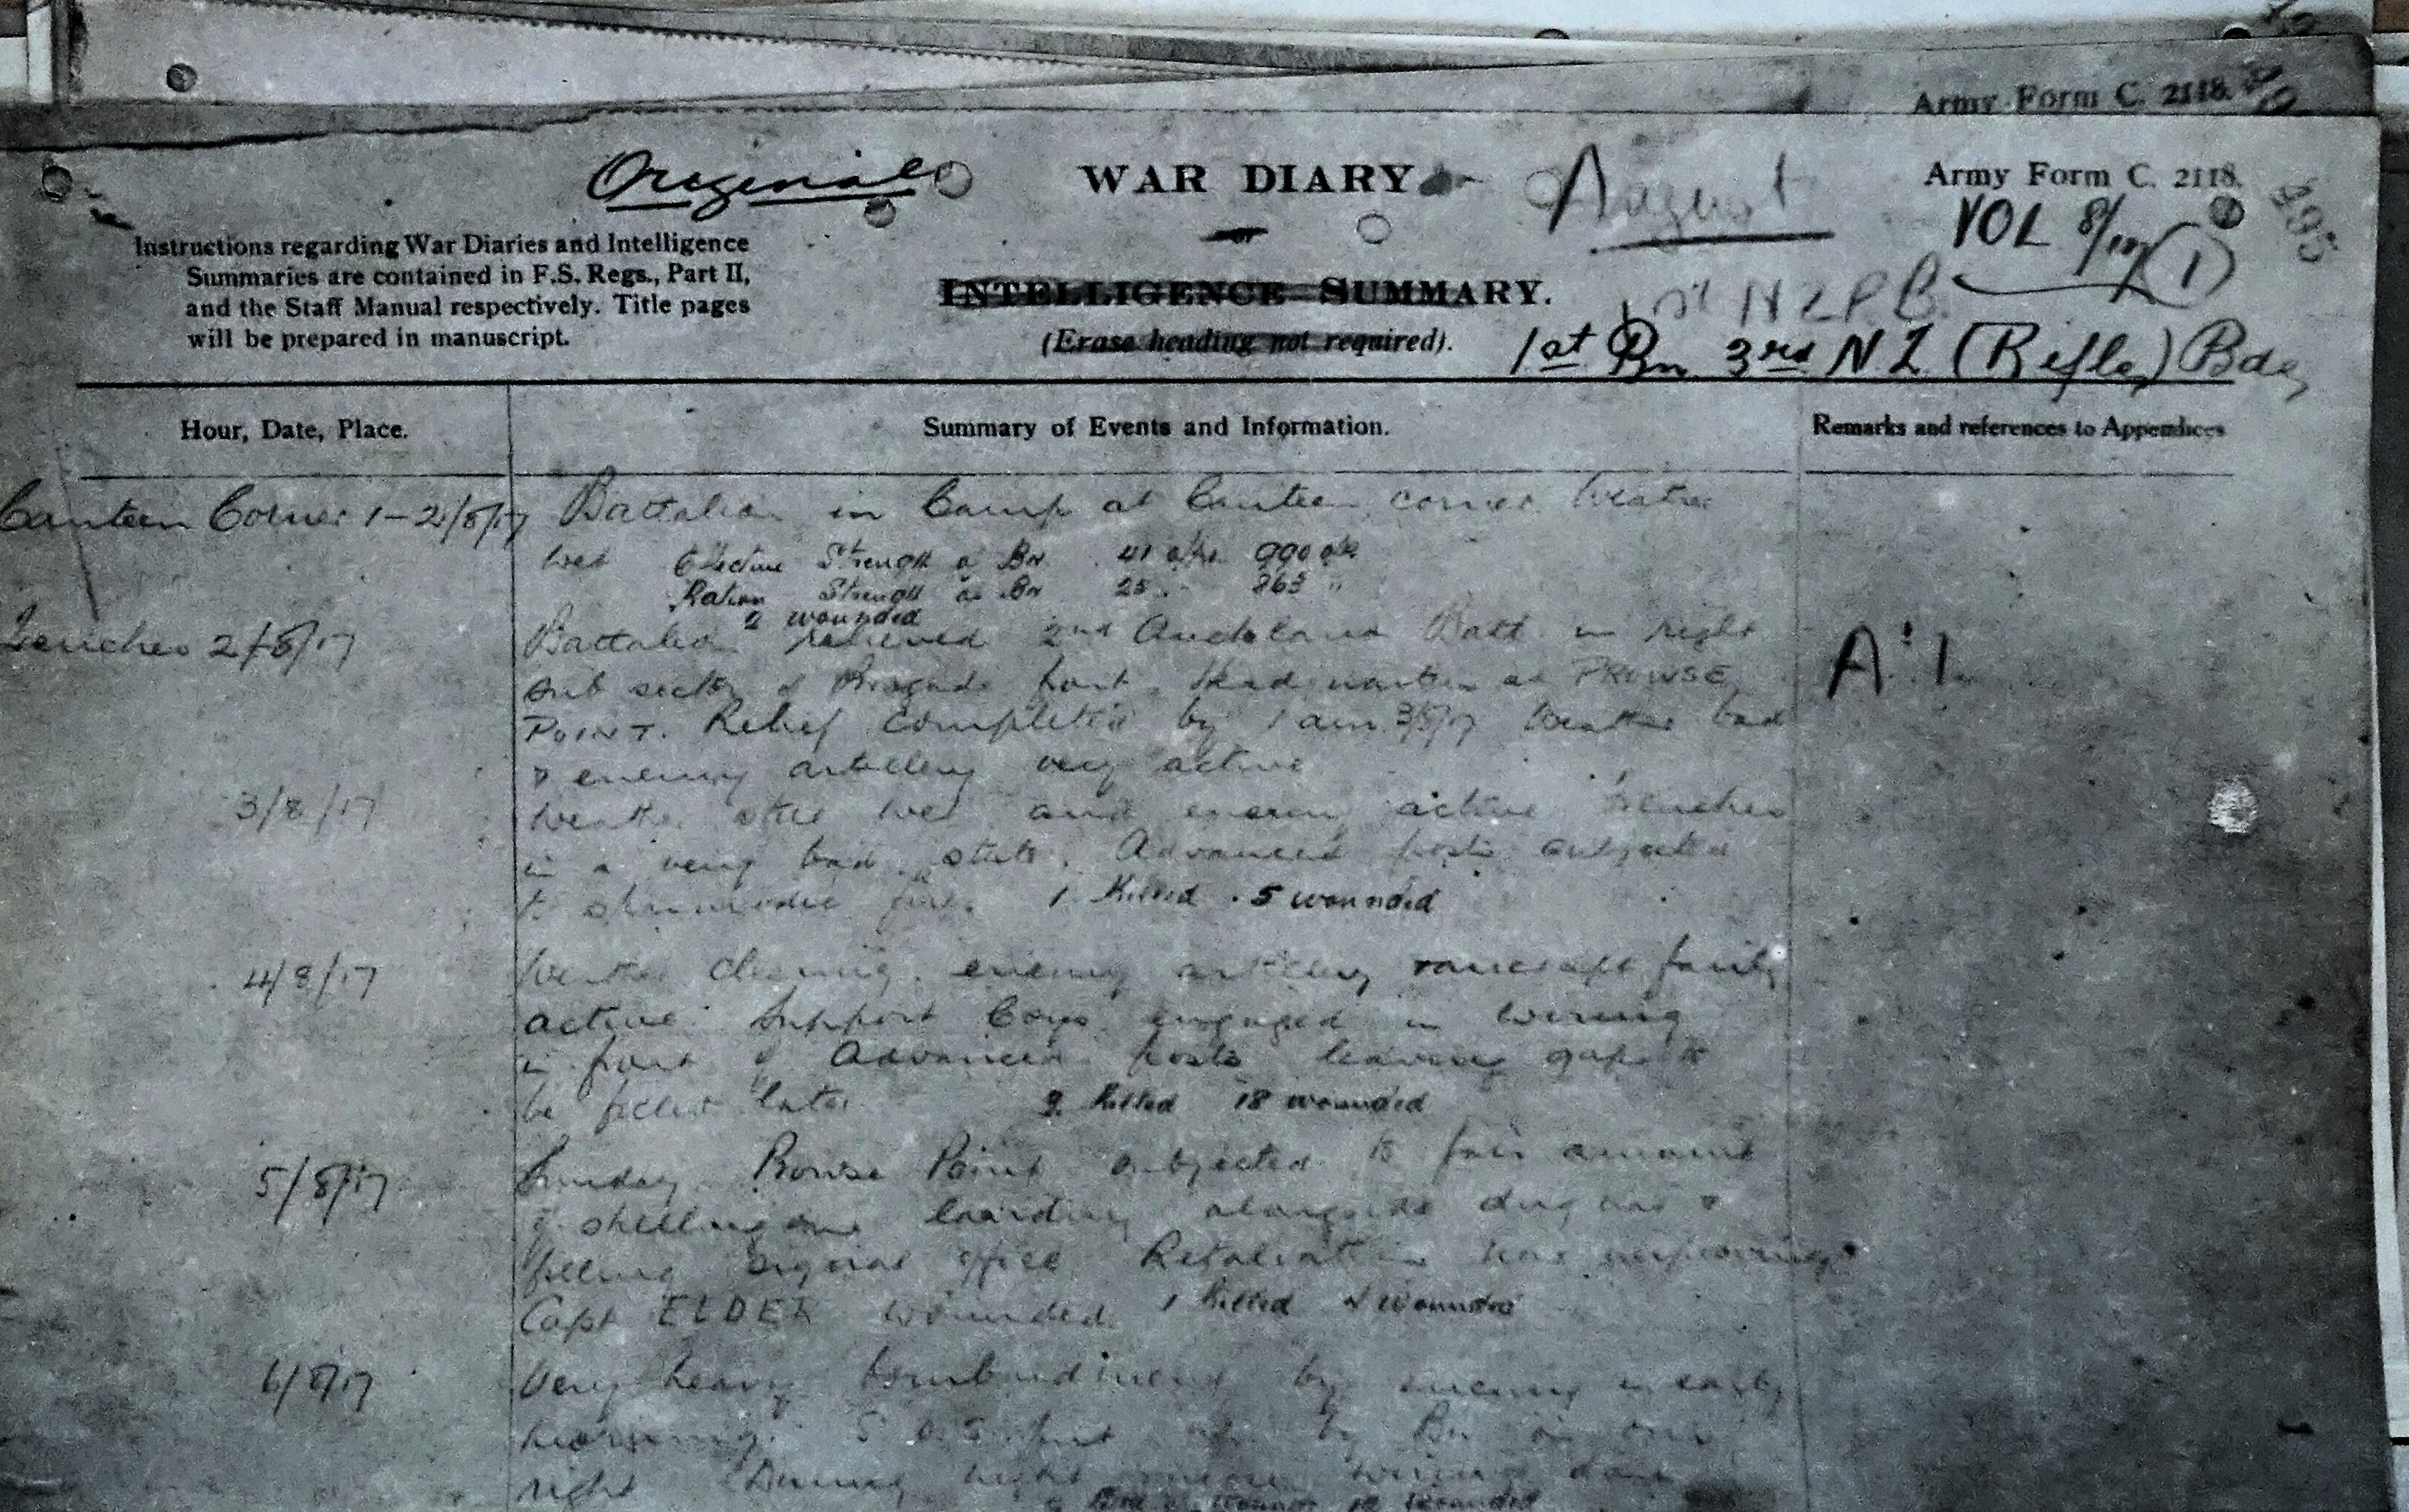 Army Form C. 2118.
Original
WAR DIARY
August
Army Form C. 2118.
or
VOL 8/17 (1)
Instructions regarding War Diaries and Intelligence
Summaries are contained in F.S. Regs., Part II,
and the Staff Manual respectively. Title pages
will be prepared in manuscript.
INTELLIGENCE SUMMARY.
(Erase heading not required).
1st Bn 3rd N Z (Rifle) Bde
Hour, Date, Place.
Summary of Events and Information.
Remarks and references to Appendices
Canteen Corner 1-2/8/17
Battalion in Camp at Canteen corner. Weather
wet Effective Strength of Bn 41 990
Ration Strength of Bn 25 863 "
2 wounded
Trenches 2/8/17
Battalion relieved 2nd Auckland Batt. in right
A.1
sub sector of Brigade front. Head quarters at PROWSE
POINT. Relief completed by 1 am 3/8/17 Weather bad
& enemy artillery very active
3/8/17
Weather still wet and enemy active Trenches
in a very bad state. Advanced posts subjected
to fire. 1 Killed . 5 wounded
4/8/17
Weather clearing. enemy artillery fairly
active. Support Coys engaged in wiring
in front of Advanced posts leaving gaps to
be filled later 18 wounded
5/8/17
Sunday. Prowse Point subjected to fair amount
of shelling one landing alongside dug out &
filling signal office Retaliation was
Capt ELDER wounded. 1 Killed 4 Wounded
6/8/17
Very heavy bombardment by enemy in early
morning. S.O.S. put up by Bn on our
right During night wiring